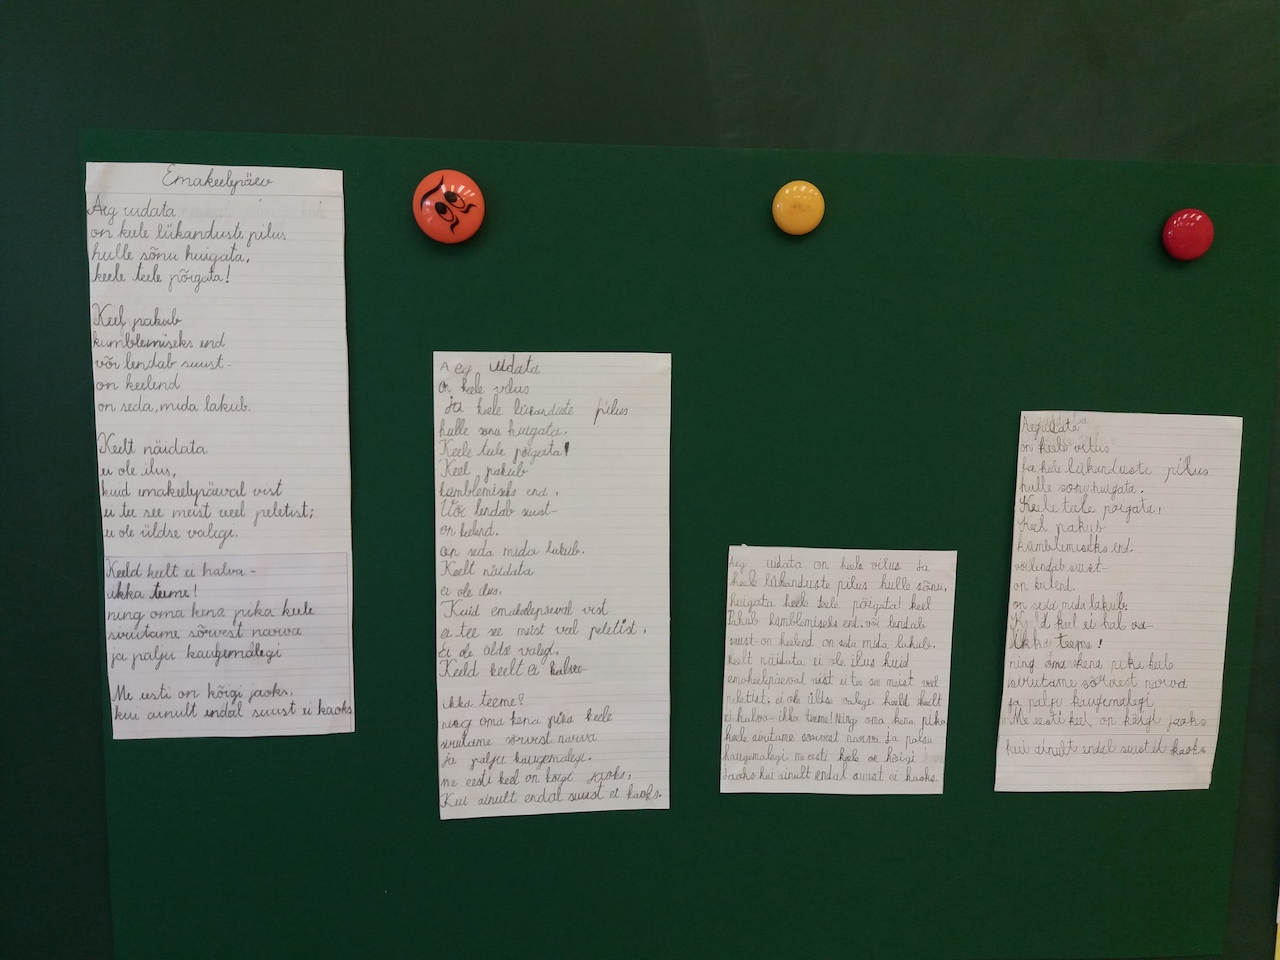 Emakeelepäev
Aeg uidata
on keele lükanduste pilus
hulle sõnu huigata,
keele teele põigata!
Keel pakub
kümblemiseks end
või lendab suust-
on keelend
on seda, mida lakub.
Keelt näidata
ei ole ilus,
kuid emakeelepäeval vist
ei tee see meist veel peletist;
ei ole üldse valegi.
Keeld keelt ei halva-
ikka teeme!
ning oma kena pika keele
sirutame sõrvest narva
ja palju kaugemalegi
Me eesti on kõigi jaoks.
kui ainult endal suust ei kaoks
Aeg uidata
on keele vilus
Ja keele lükanduste pilus
hulle sonu huigata.
Keele teele põigata!
Keel pakub
kümblemiseks end.
Või lendab suust-
on keelend.
on seda mida lakub.
Keelt näidata
ei ole ilus.
Kuid emakelepäeval vist
ei tee see meist veel peletist.
Ei ole üldse valegi.
Keeld keelt ei halva-
ikka teeme!
ning oma kena pika keele
sirutame sõrvest narva
Ja palju kaugemalegi.
me eesti keel on kõigi jaoks,
Kui ainult endal suust ei kaoks.
Aeg uidata on keele vilus Ja
keele lükanduste pilus hulle sõnu,
huigata keele teele põigata! keel
Pakub kümblemiseks end. või lendab
suust-on keelend on seda mida lakub.
Keelt näidata ei ole ilus kuid
emakeelepäeval vist ei tee see meist veel
peletist; ei ole üldse valegi. keeld keelt
ei halva-ikka teeme! Ning oma kena pika
keele sirutame sõrvest narva Ja palju
kaugemalegi me eesti keele on kõigi
Jaoks kui ainult endal suust ei kaoks.
Aeg uidata
on keele vilus
Ja keele lükanduste pilus
hulle sonu huigata.
Keele teele põigata!
Keel pakub
kümblemiseks end.
või lendab suust-
on keelend.
on seda mida lakub.
Keeld keel ei hal va-
Ikka teeme!
ning oma kena pika keele
sirutame sõrvest narva
ja palju kaugemalegi
Me eesti keel on kõigi jaoks
kui ainult endal suust ei kaoks